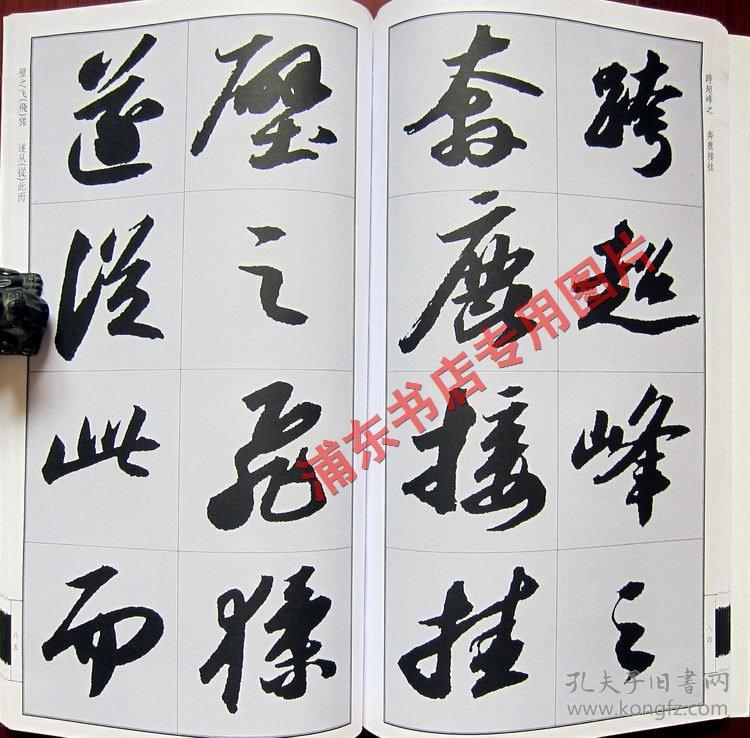 跨超峰之 奔鹿接挂
跨超峰之
奔鹿接挂
八四
壁之飞(飛)猱 遂从(從)此而
壁之飛猱
遂從此而
八五
浦东书店专用图片
孔夫子旧書网
www.kongfz.com